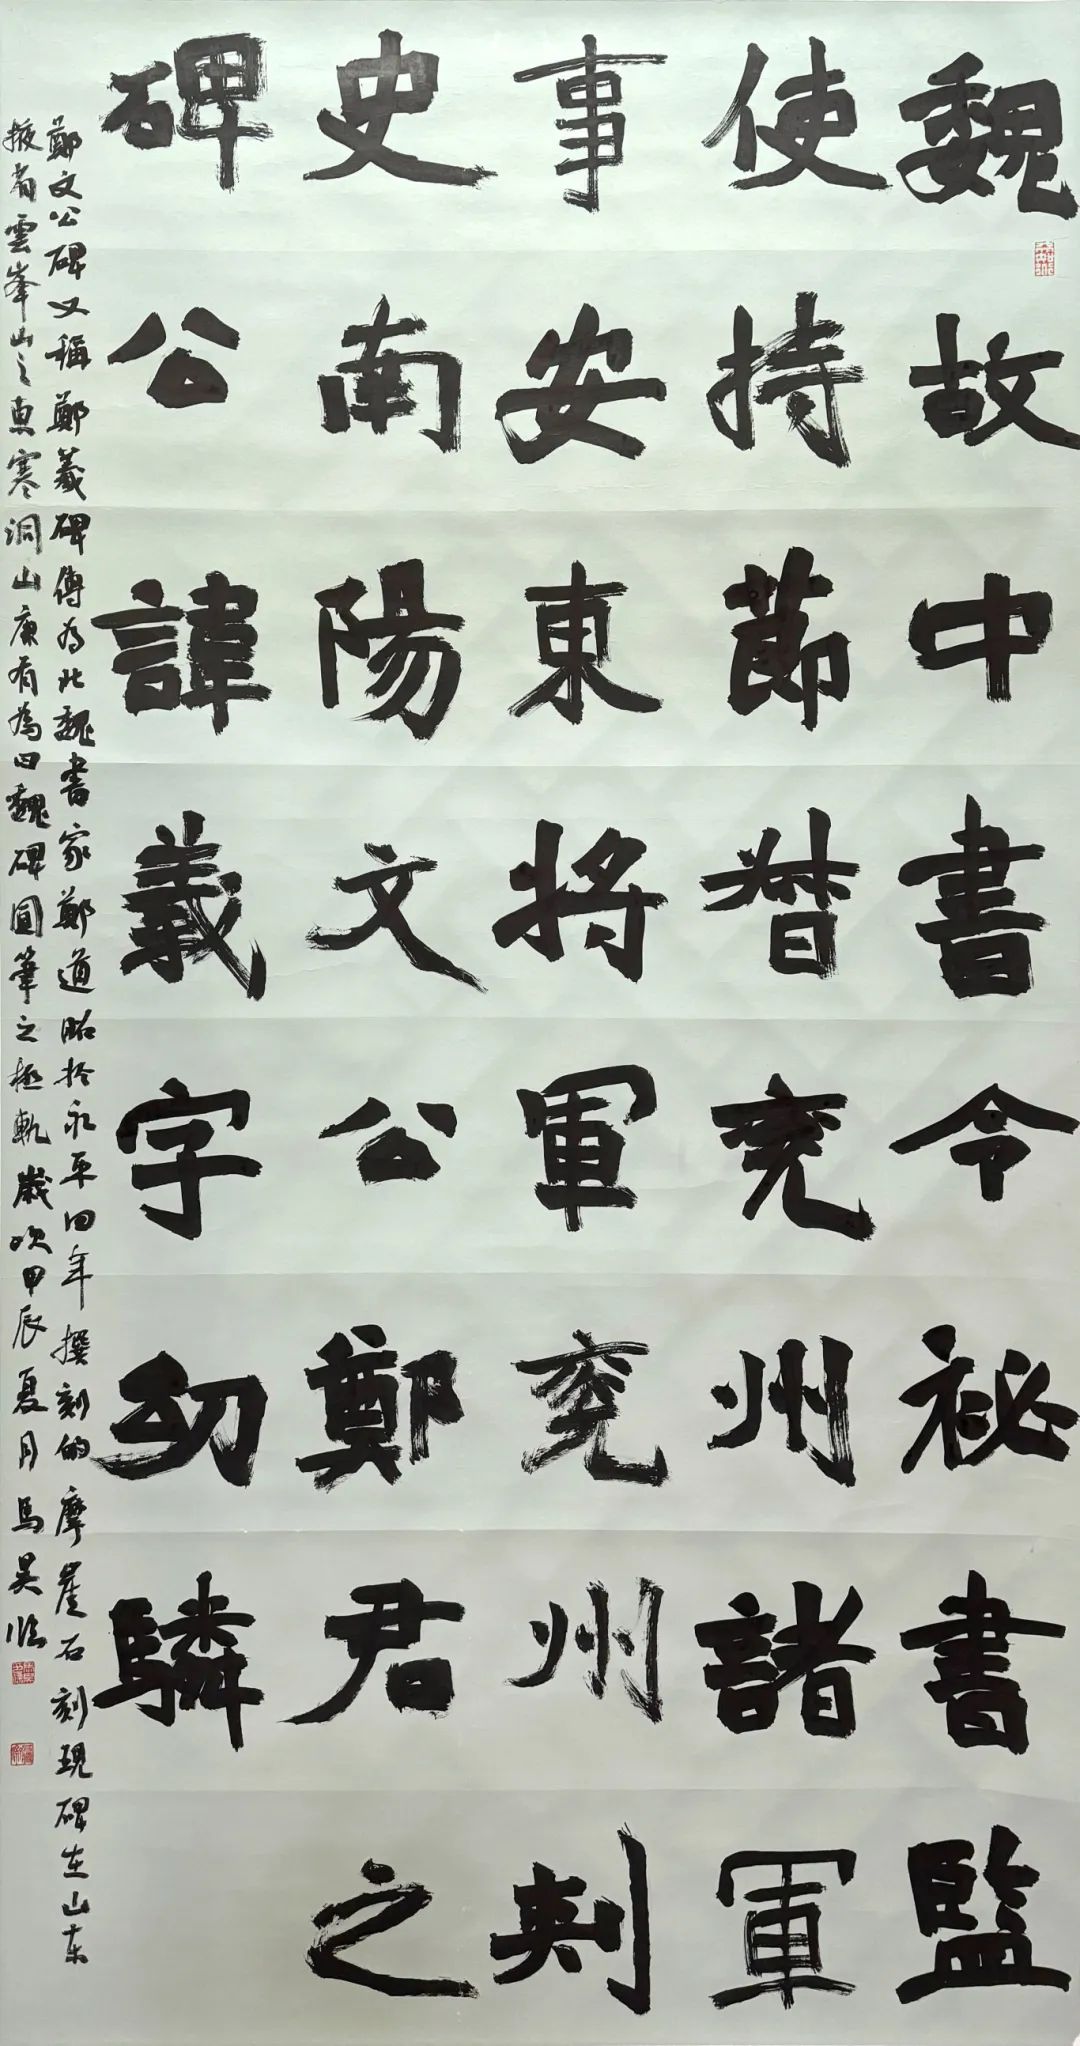 魏故中書令祕書監
使持節督兗州諸軍
事安東將軍兗州刺
史南陽文公鄭君之
碑公諱羲字幼驎
鄭文公碑又稱鄭羲碑傳为北魏書家鄭道昭於永平四年撰刻的摩崖石刻現碑在山东
掖省雲峯山之東寒洞山康有為曰魏碑圓筆之極軌歲次甲辰夏月馬昊臨